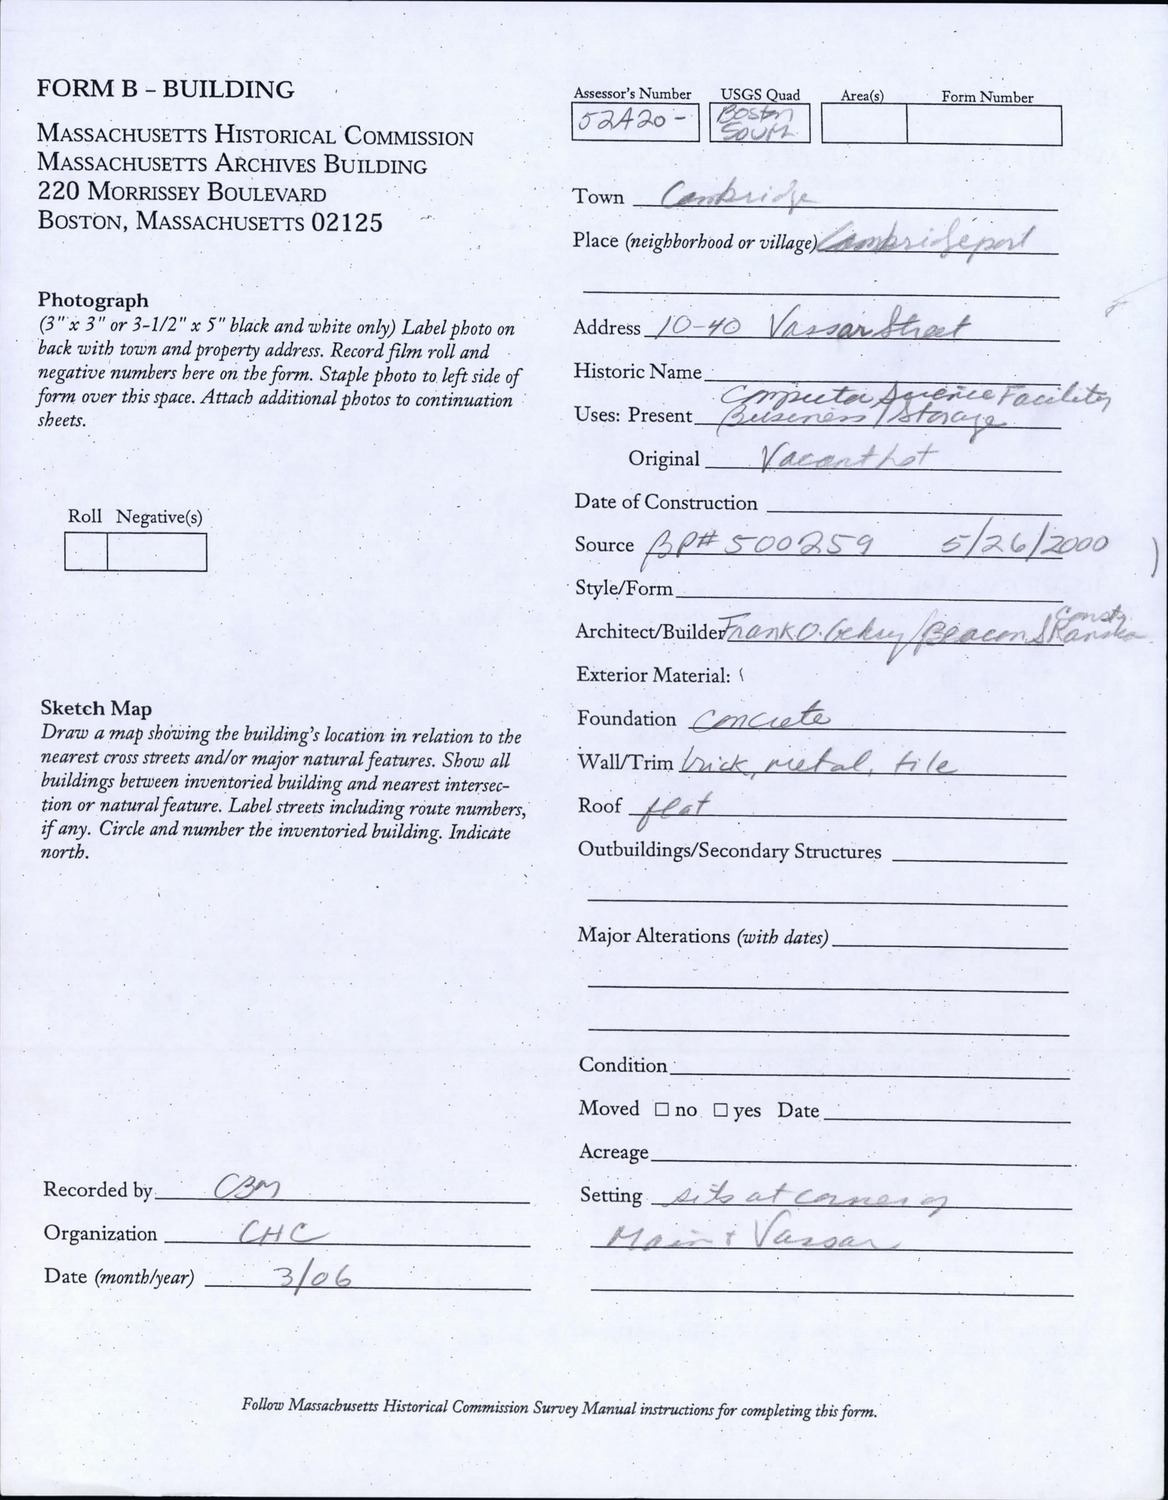 FORM B – BUILDING
MASSACHUSETTS HISTORICAL COMMISSION
MASSACHUSETTS ARCHIVES BUILDING
220 MORRISSEY BOULEVARD
BOSTON, MASSACHUSETTS 02125
Photograph
(3" x 3" or 3-1/2" x 5" black and white only) Label photo on
back with town and property address. Record film roll and
negative numbers here on the form. Staple photo to left side of
form over this space. Attach additional photos to continuation
sheets.
Roll Negative(s)
Sketch Map
Draw a map showing the building's location in relation to the
nearest cross streets and/or major natural features. Show all
buildings between inventoried building and nearest intersec-
tion or natural feature. Label streets including route numbers,
if any. Circle and number the inventoried building. Indicate
north.
Recorded by CBM
Organization CHC
Date (month/year) 3/06
Assessor's Number USGS Quad Area(s) Form Number
52A20- Boston
South
Town Cambridge
Place (neighborhood or village) Cambridgeport
Address 10-40 Vassar Street
Historic Name
Computer Science Facility
Uses: Present Business/Storage
Original Vacant Lot
Date of Construction
Source BP# 500259 5/26/2000
Style/Form
Const
Architect/Builder Frank O. Gehry/Beacon Skanska
Exterior Material:
Foundation concrete
Wall/Trim brick, metal, tile
Roof flat
Outbuildings/Secondary Structures
Major Alterations (with dates)
Condition
Moved □ no □ yes Date
Acreage
Setting sits at corner of
Main + Vassar
Follow Massachusetts Historical Commission Survey Manual instructions for completing this form.